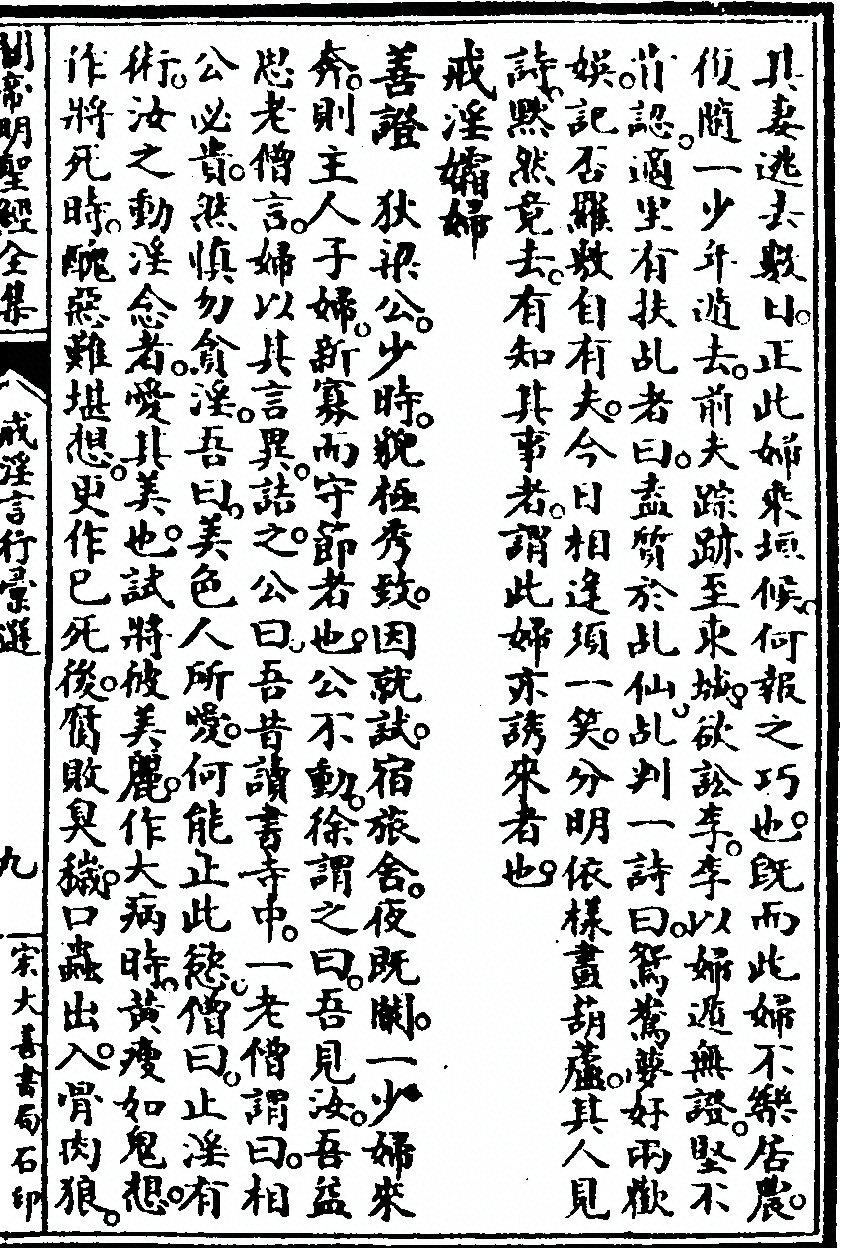 其妻逃去數日。正此婦乘垣候。何報之巧也。旣而此婦不樂居農。
復隨一少年遁去。前夫踪跡至東城。欲訟李。李以婦遁無證。堅不
肯認。適里有扶乩者曰。盍質於乩仙。乩判一詩曰。鴛鴦夢好兩歡
娛。記否羅敷自有夫。今日相逢須一笑。分明依樣畫葫蘆。其人見
詩。黙然竟去。有知其事者。謂此婦亦誘來者也。
戒淫孀婦
善證　狄梁公。少時。貌極秀致。因就試。宿旅舍。夜旣闌。一少婦來
奔。則主人子婦。新寡而守節者也。公不動。徐謂之曰。吾見汝。吾益
思老僧言。婦以其言異。詰之。公曰。吾昔讀書寺中。一老僧謂曰。相
公必貴。然慎勿貪淫。吾曰。美色人所愛。何能止此慾。僧曰。止淫有
術。汝之動淫念者。愛其美也。試將彼美麗。作大病時。黃瘦如鬼想。
作將死時。醜惡難堪想。更作已死後。腐敗臭穢。口蟲出入。骨肉狼。
關帝明聖經全集
戒淫言行彙選
九
宋大善書局石印